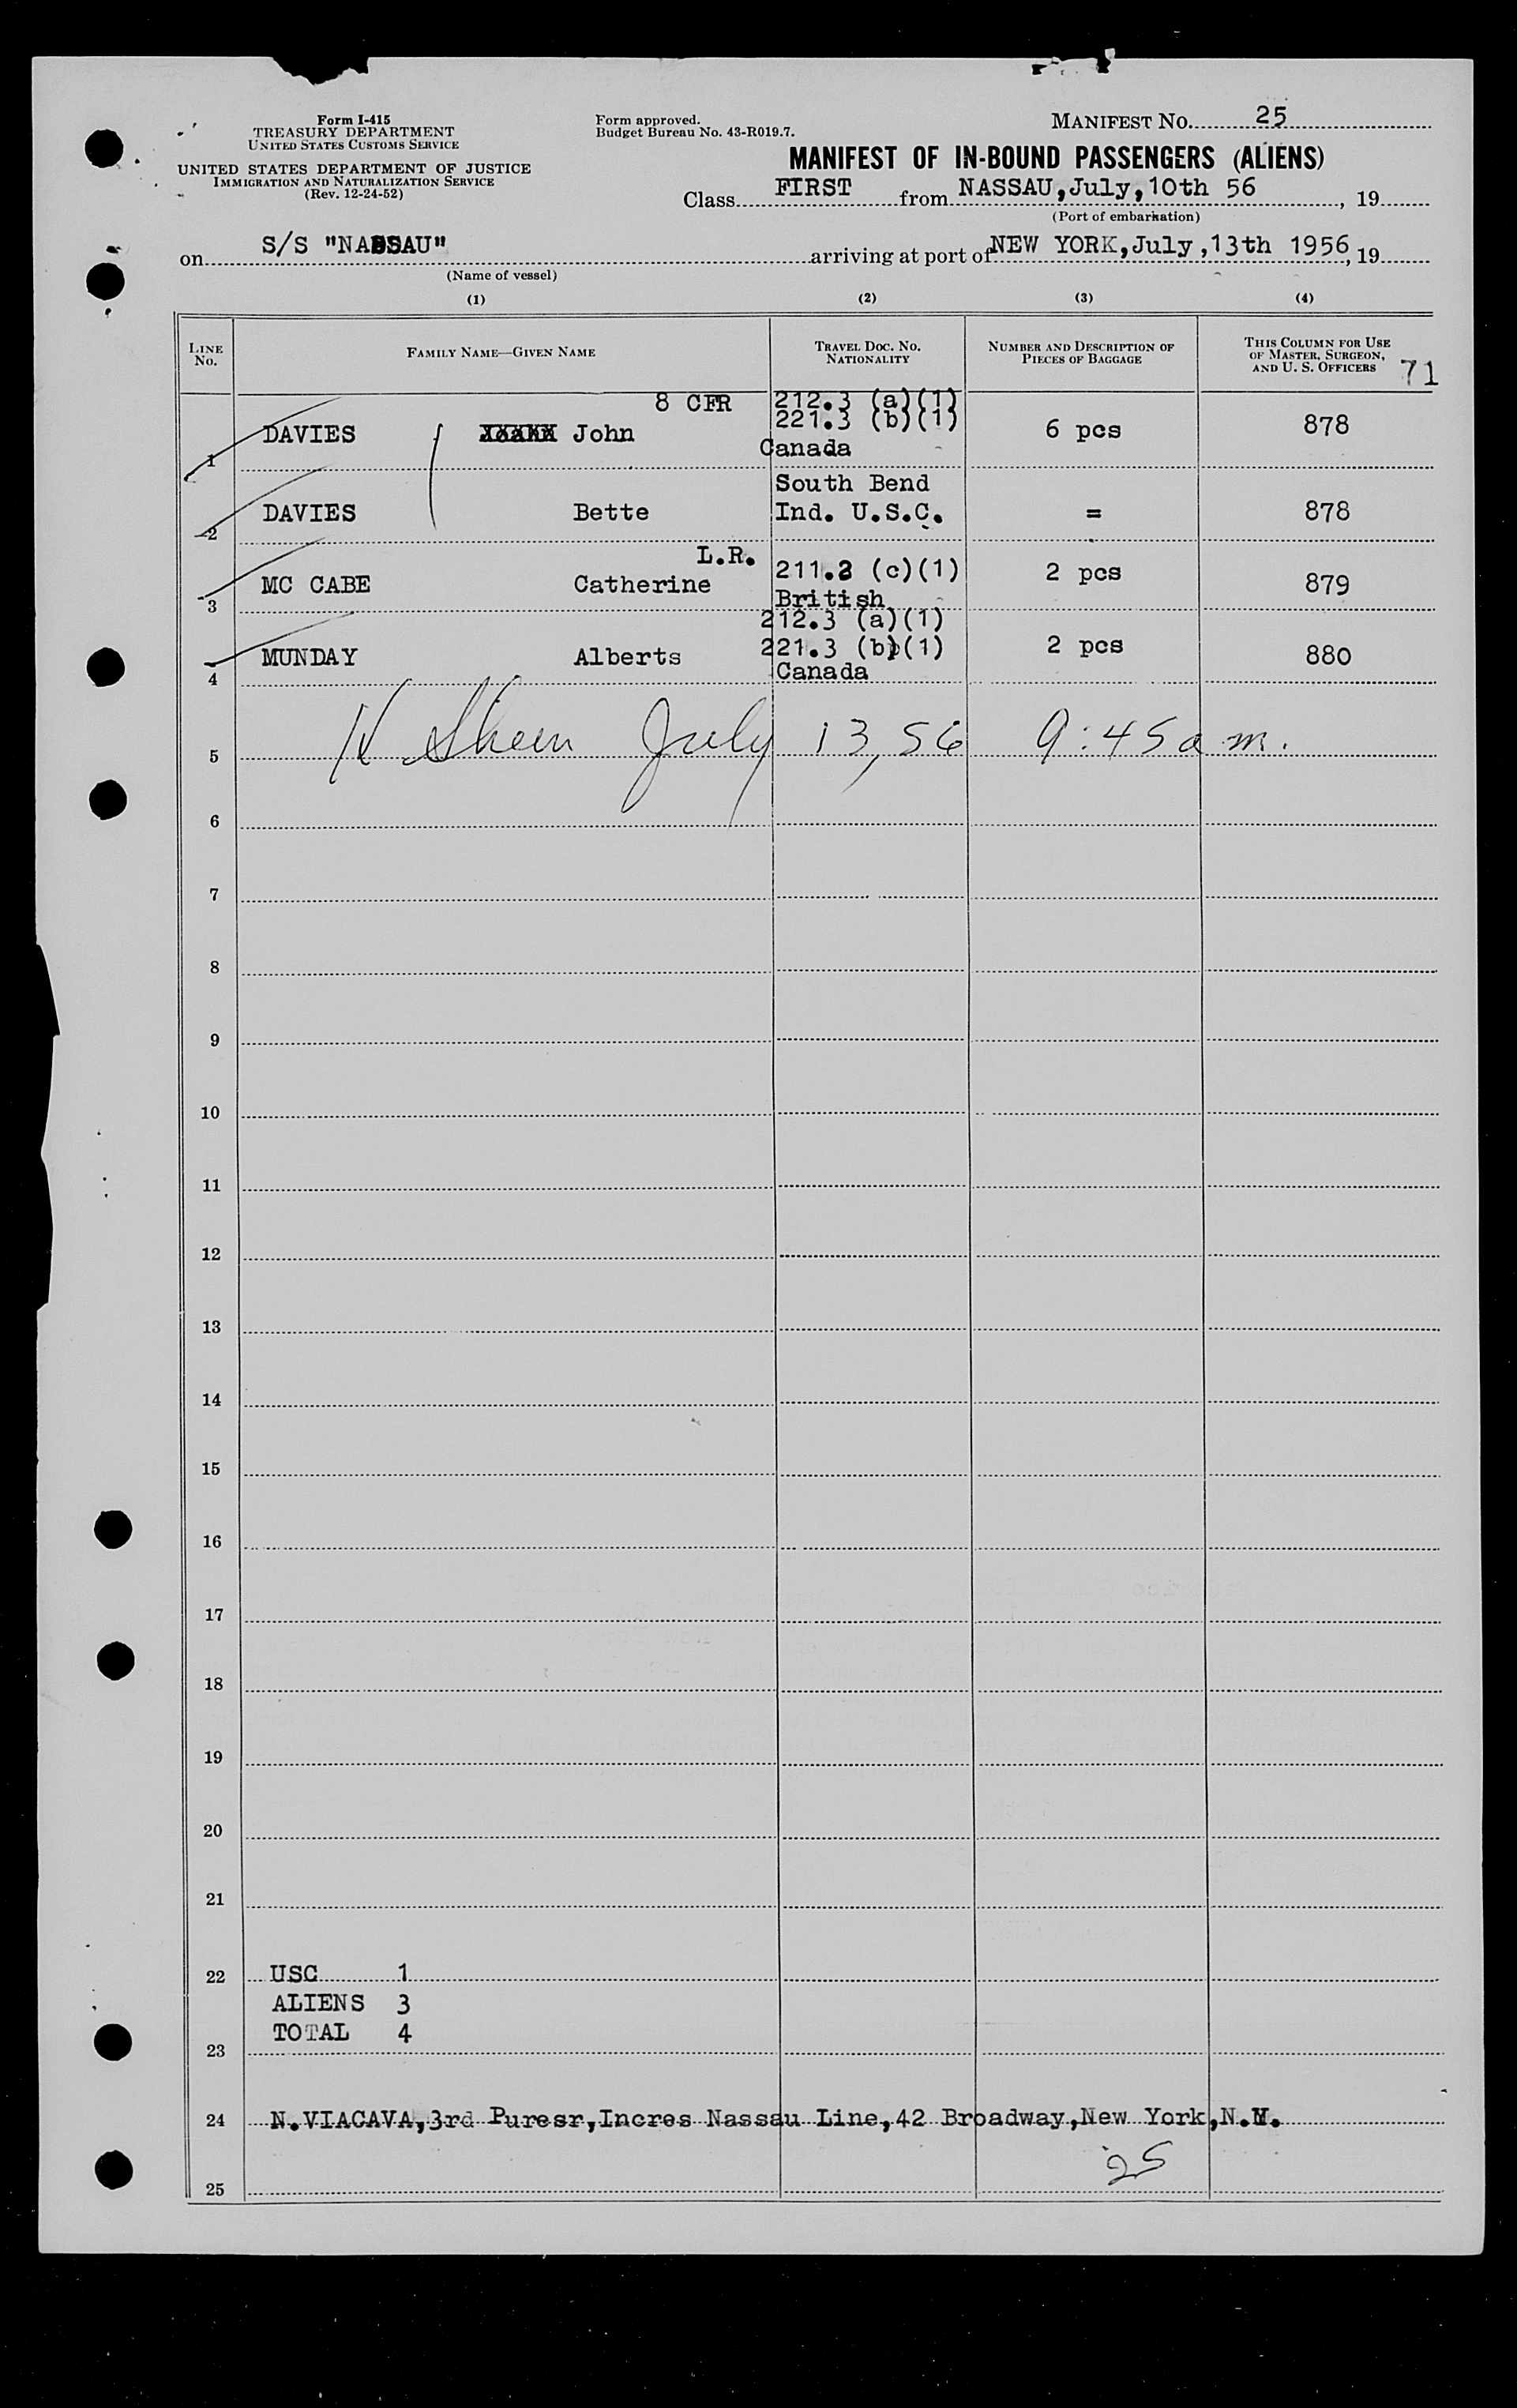 Form I-415
TREASURY DEPARTMENT
UNITED STATES CUSTOMS SERVICE
UNITED STATES DEPARTMENT OF JUSTICE
IMMIGRATION AND NATURALIZATION SERVICE
(Rev. 12-24-52)
Form approved.
Budget Bureau No. 43-R019.7.
MANIFEST NO. 25
MANIFEST OF IN-BOUND PASSENGERS (ALIENS)
Class FIRST from NASSAU,July,10th 56, 19
(Port of embarkation)
on S/S "NASSAU" arriving at port of NEW YORK,July,13th 1956, 19
(Name of vessel)
(1) (2) (3) (4)
LINE NO. FAMILY NAME—GIVEN NAME TRAVEL DOC. NO. NATIONALITY NUMBER AND DESCRIPTION OF PIECES OF BAGGAGE THIS COLUMN FOR USE OF MASTER, SURGEON, AND U. S. OFFICERS 71
8 CFR 212.3 (a)(1)
221.3 (b)(1)
1 DAVIES John Canada 6 pcs 878
South Bend
2 DAVIES Bette Ind. U.S.C. = 878
L.R. 211.2 (c)(1)
3 MC CABE Catherine British 2 pcs 879
212.3 (a)(1)
221.3 (b)(1)
4 MUNDAY Alberts Canada 2 pcs 880
5 July 13, 56 9:45 a m.
6
7
8
9
10
11
12
13
14
15
16
17
18
19
20
21
22 USC 1
ALIENS 3
TOTAL 4
23
24 N.VIACAVA,3rd Puresr,Incres Nassau Line,42 Broadway,New York,N.Y.
25
25